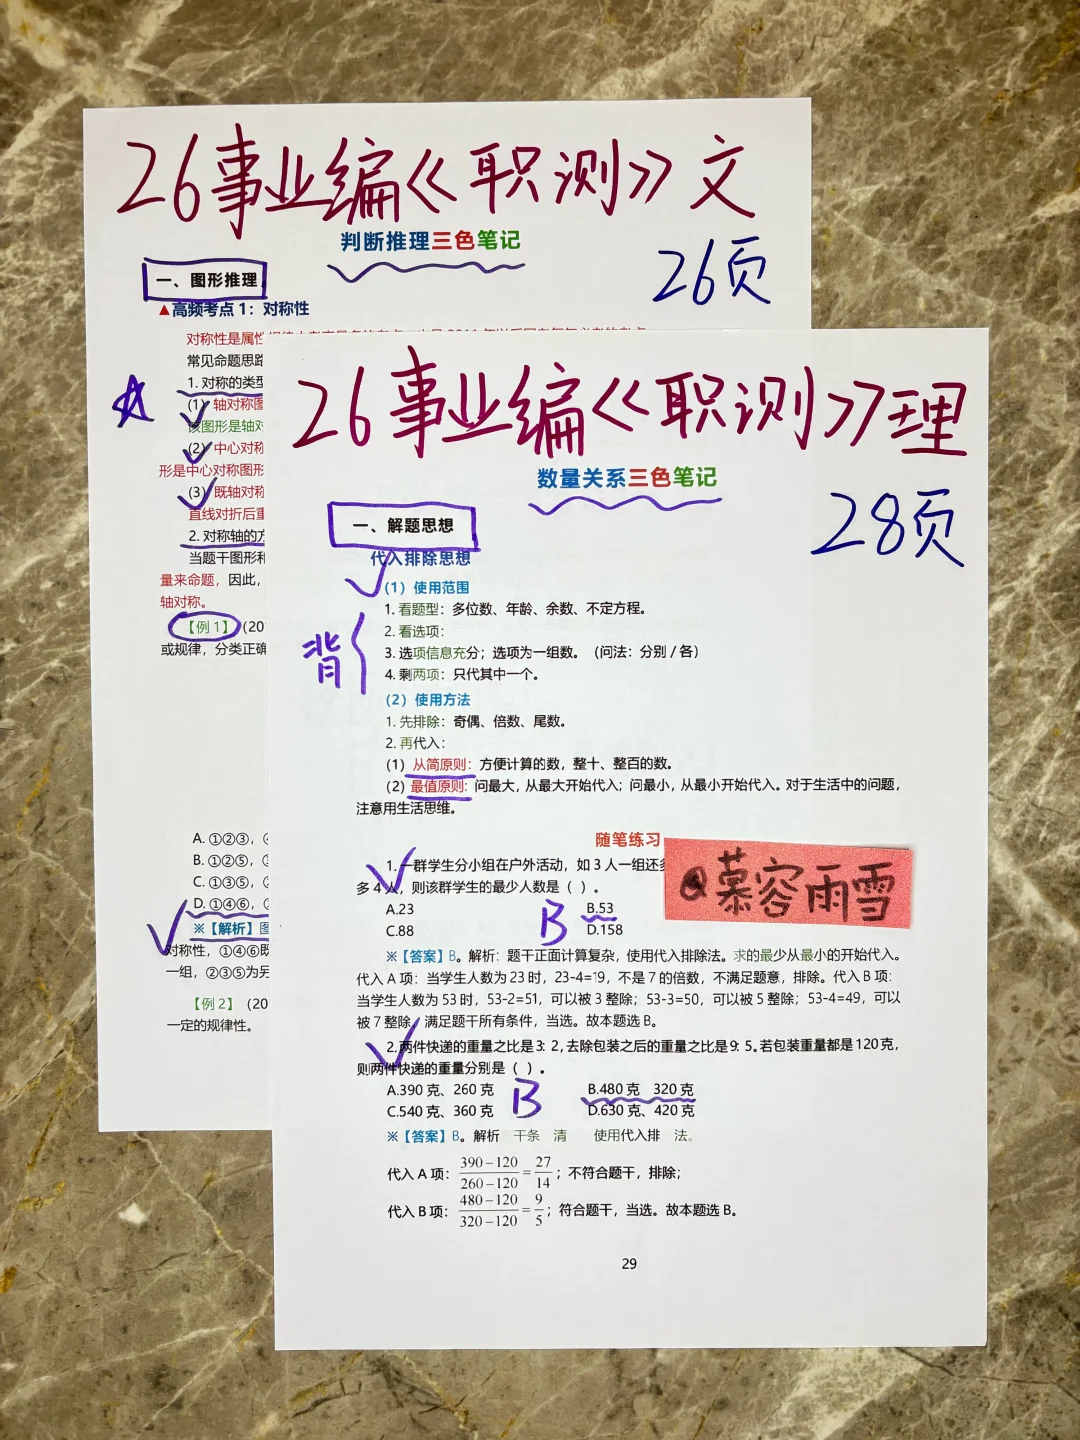 26事业编《职测》文
判断推理三色笔记
26页
一、图形推理
▲高频考点1：对称性
对称性是属性
常见命题思路
1. 对称的类型
(1) 轴对称图
该图形是轴对
(2) 中心对称
形是中心对称图形
(3) 既轴对称
直线对折后重
2. 对称轴的方
当题干图形和
量来命题，因此，
轴对称。
【例1】（20
或规律，分类正确
A. ①②③，
B. ①②⑤，
C. ①③⑤，
D. ①④⑥，
※【解析】图
对称性，①④⑥既
一组，②③⑤为另
【例2】（20
一定的规律性。
26事业编《职测》理
数量关系三色笔记
28页
一、解题思想
代入排除思想
（1）使用范围
1. 看题型：多位数、年龄、余数、不定方程。
2. 看选项：
背
3. 选项信息充分；选项为一组数。（问法：分别 / 各）
4. 剩两项：只代其中一个。
（2）使用方法
1. 先排除：奇偶、倍数、尾数。
2. 再代入：
(1) 从简原则：方便计算的数，整十、整百的数。
(2) 最值原则：问最大，从最大开始代入；问最小，从最小开始代入。对于生活中的问题，
注意用生活思维。
随笔练习
@慕容雨雪
1. 一群学生分小组在户外活动，如 3 人一组还多
多 4 人，则该群学生的最少人数是（ ）。
A.23 B.53
B
C.88 D.158
※【答案】B。解析：题干正面计算复杂，使用代入排除法。求的最少从最小的开始代入。
代入 A 项：当学生人数为 23 时，23-4=19，不是 7 的倍数，不满足题意，排除。代入 B 项：
当学生人数为 53 时，53-2=51，可以被 3 整除；53-3=50，可以被 5 整除；53-4=49，可以
被 7 整除。满足题干所有条件，当选。故本题选 B。
2. 两件快递的重量之比是 3: 2，去除包装之后的重量之比是 9: 5。若包装重量都是 120 克，
则两件快递的重量分别是（ ）。
A.390 克、260 克 B.480 克 320 克
B
C.540 克、360 克 D.630 克、420 克
※【答案】B。解析 干条 清 使用代入排 法。
代入 A 项：390−120/260−120=27/14；不符合题干，排除；
代入 B 项：480−120/320−120=9/5；符合题干，当选。故本题选 B。
29